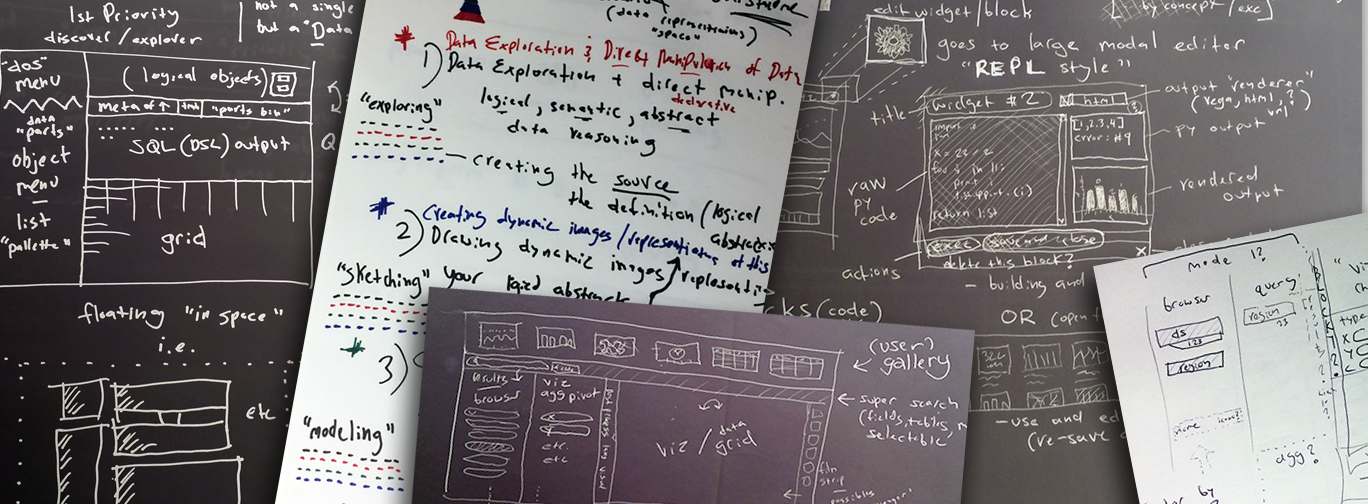 1st Priority
discover/explorer
not a single
but a "Data
"dos"
menu
data
"parts"
object
menu
list
"pallette"
(logical objects)
meta of ↑
"parts bin"
SQL (DSL) output
grid
floating "in space"
i.e.
etc
(data representations)
"space"
* Data Exploration & Direct Manipulation of Data
1) Data Exploration + direct manip.
"exploring"
logical, semantic, abstract
declarative
data reasoning
— creating the source
the definition (logical
* Creating dynamic images/representations of this
2) Drawing dynamic images/representati
"sketching"
your
3)
"modeling"
edit widget/block
by concept/exc]
goes to large modal editor
"REPL style"
title
widget #2
html
output "renderer"
(vega, html, ?)
[1,2,3,4]
error: #9
py output
raw
py
code
return list
rendered
output
actions
exec
save and close
delete this block?
x
- building and
OR (open
cks (code)
-use and ed
(re-save
(user)
gallery
super search
(fields, tables,
selectable
results
browser
viz
agg pivot
etc.
etc
viz/grid
data
film
strip
possibles
mode 1?
browser
query?
ds
123
region
region
23
name
agg?
by
type
X
Y
C